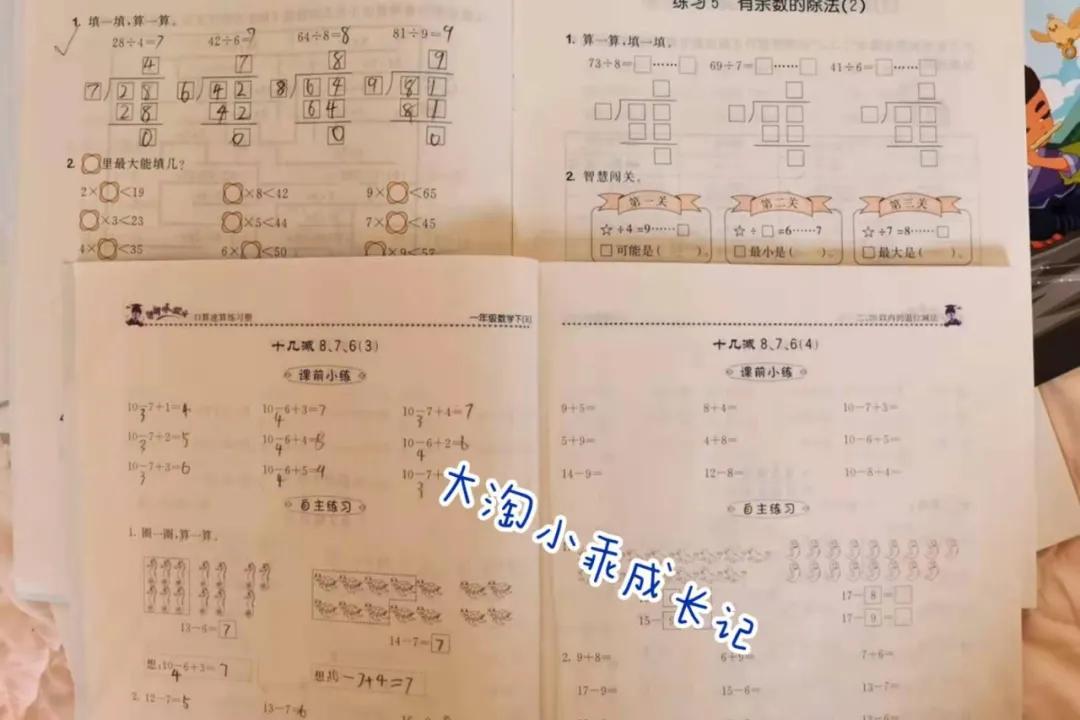 1. 填一填,算一算。
28÷4=7 42÷6=7 64÷8=8 81÷9=9
4 7 8 9
7 28 6 42 8 64 9 81
28 42 64 81
0 0 0 0
2. ○里最大能填几?
2×○<19 ○×8<42 9×○<65
○×3<23 ○×5<44 7×○<45
4×○<35 6×○<50 ○×9<57
练习5 有余数的除法(2)
1. 算一算,填一填。
73÷8=□……□ 69÷7=□……□ 41÷6=□……□
2. 智慧闯关。
第一关 第二关 第三关
☆÷4=9……□ ☆÷□=6……7 ☆÷7=8……□
□可能是( )。 □最小是( )。 □最大是( )。
口算速算练习册 一年级数学下(RJ)
十几减8、7、6(3)
课前小练
10-7+1=4 10-6+3=7 10-7+4=7
3 4 3
10-7+2=5 10-6+4=8 10-6+2=6
3 4 4
10-7+3=6 10-6+5=9 10-7+
3 4 3
自主练习
1. 圈一圈,算一算。
13-6=7 14-7=7
想:10-6+3=7
4
-7+4=7
2. 12-7=5 13-7=6
二、20以内的退位减法
十几减8、7、6(4)
课前小练
9+5= 8+4= 10-7+3=
5+9= 4+8= 10-6+5=
14-9= 12-8= 10-8+4=
自主练习
17-8=□
15-9 17-9=□
2. 9+8= 6+9= 7+6=
17-9= 15-6= 13-7=
大淘小乖成长记